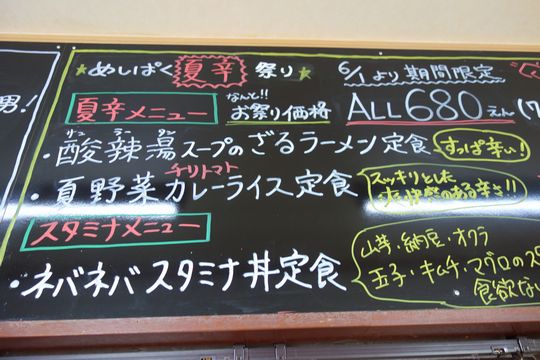 ★めしぱく夏辛祭り★
6/1より期間限定
男!
夏辛メニュー
なんと!!
お祭り価格
ALL680えん
スー ラー タン
・酸辣湯スープのざるラーメン定食
すっぱ辛い!
チリトマト
・夏野菜カレーライス定食
スッキリとした
爽快感のある辛さ!!
スタミナメニュー
・ネバネバスタミナ丼定食
山芋、納豆・オクラ
玉子・キムチ・マグロの
食欲ない